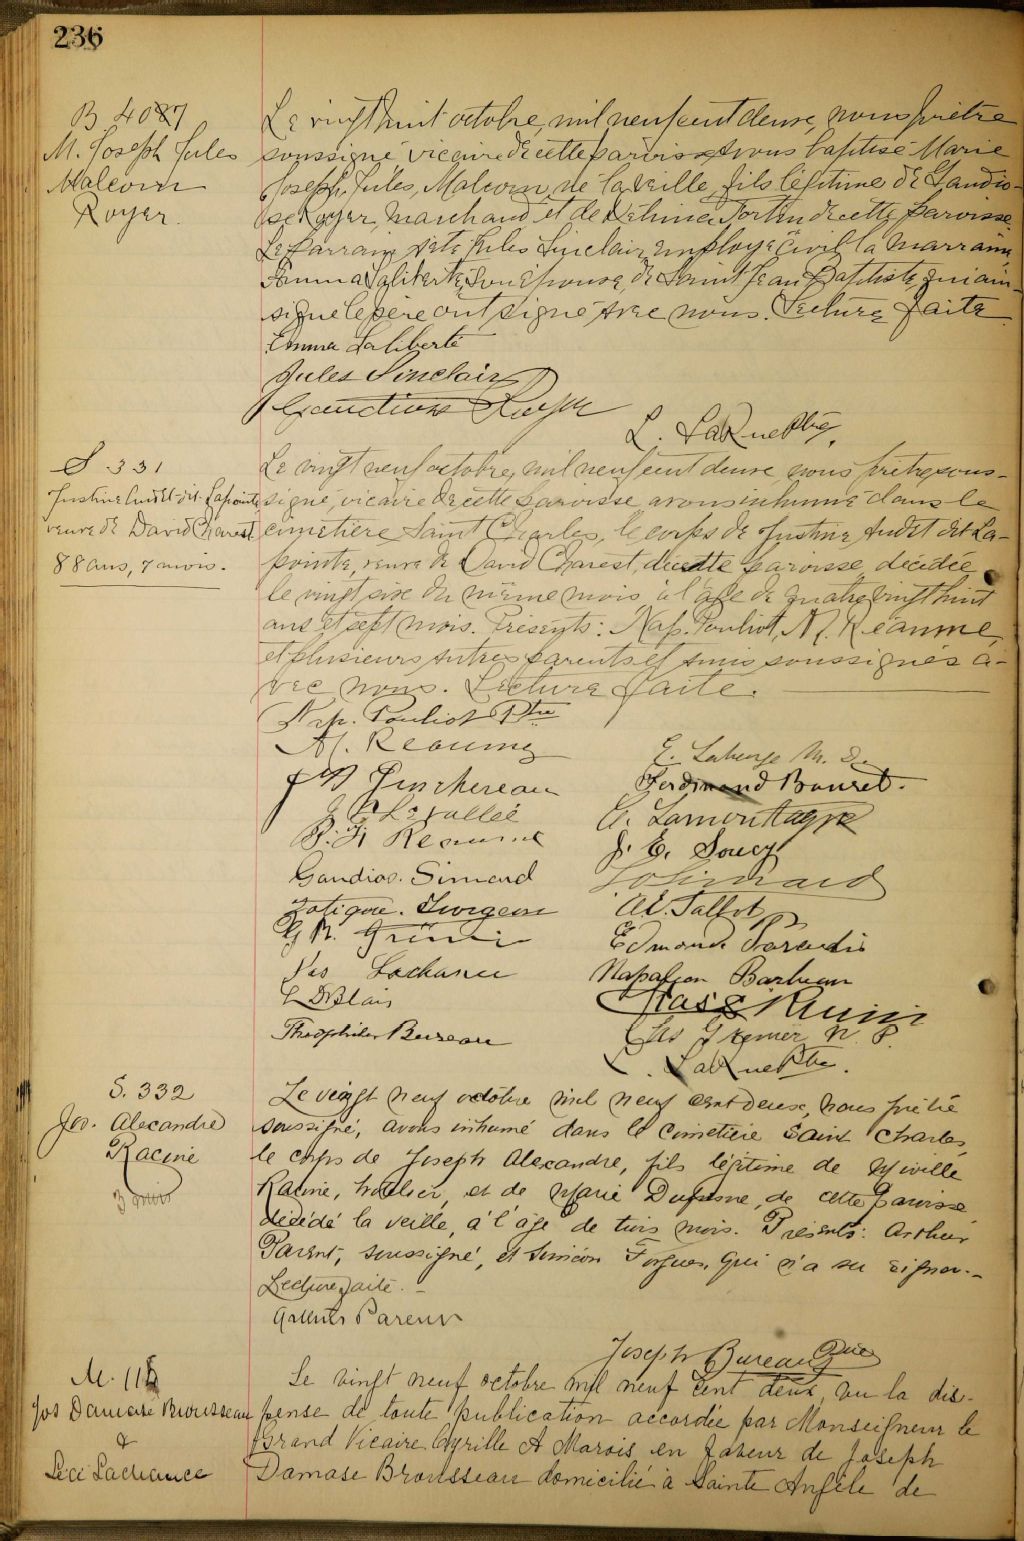 236
B 4087
M. Joseph Jules
Malcom
Royer.
Le vingt huit octobre, mil neuf cent deux, nous prêtre
soussigné vicaire de cette paroisse avons baptisé Marie
Joseph, Jules, Malcom, né la veille, fils légitime de Gaudio-
se Royer, marchand et de Délima Fortin de cette paroisse.
Le parrain a été Jules Sinclair, employé civil la marraine
Emma Laliberté, son épouse, de Saint Jean Baptiste, qui ain-
si que le père ont signé avec nous. Lecture faite
Emma Laliberté
Jules Sinclair
Gaudiose Royer
L. LaRue Ptre.
S 331
Justine Audet dit Lapointe
veuve de David Charest
88 ans, 7 mois.
Le vingt neuf octobre, mil neuf cent deux, nous prêtre, sous-
signé, vicaire de cette paroisse avons inhumé dans le
cimetière Saint Charles, le corps de Justine Audet dit La-
pointe, veuve de David Charest, de cette paroisse, décédée
le vingt six du même mois, à l'âge de quatre vingt huit
ans et sept mois. Présents: Nap. Pouliot, M. Réaume,
et plusieurs autres parents et amis soussignés a-
vec nous. Lecture faite.
Nap. Pouliot Ptre
M. Reaume
E. Laberge M. D.
Ferdinand Bourret.
J. C. Levallée
A. Lamontagne
J. E. Soucy
Gaudios. Simard
Simard
Zotique. Turgeon
A. E. Talbot
Edmond Paradis
Jos Lachance
Napoléon Barbeau
L D Blais
Théophile Bureau
Jas Grenier N. P.
L. LaRue Ptre.
S. 332
Jos. Alexandre
Racine
3 mois
Le vingt neuf octobre mil neuf cent deux, nous prêtre
soussigné, avons inhumé dans le cimetière Saint Charles,
le corps de Joseph Alexandre, fils légitime de Miville
Racine, hôtelier, et de Marie Dufresne, de cette paroisse
décédé la veille, à l'âge de trois mois. Présents: Arthur
Parent, soussigné, et Siméon Forgues, qui n'a su signer.-
Lecture faite. -
Arthur Parent
Joseph Bureau Ptre
M. 115
Jos Damase Brousseau
&
Lacé Lachance
Le vingt neuf octobre mil neuf cent deux, vu la dis-
pense de toute publication accordée par Monseigneur le
Grand Vicaire Cyrille A Marois en faveur de Joseph
Damase Brousseau domicilié à Sainte Angèle de